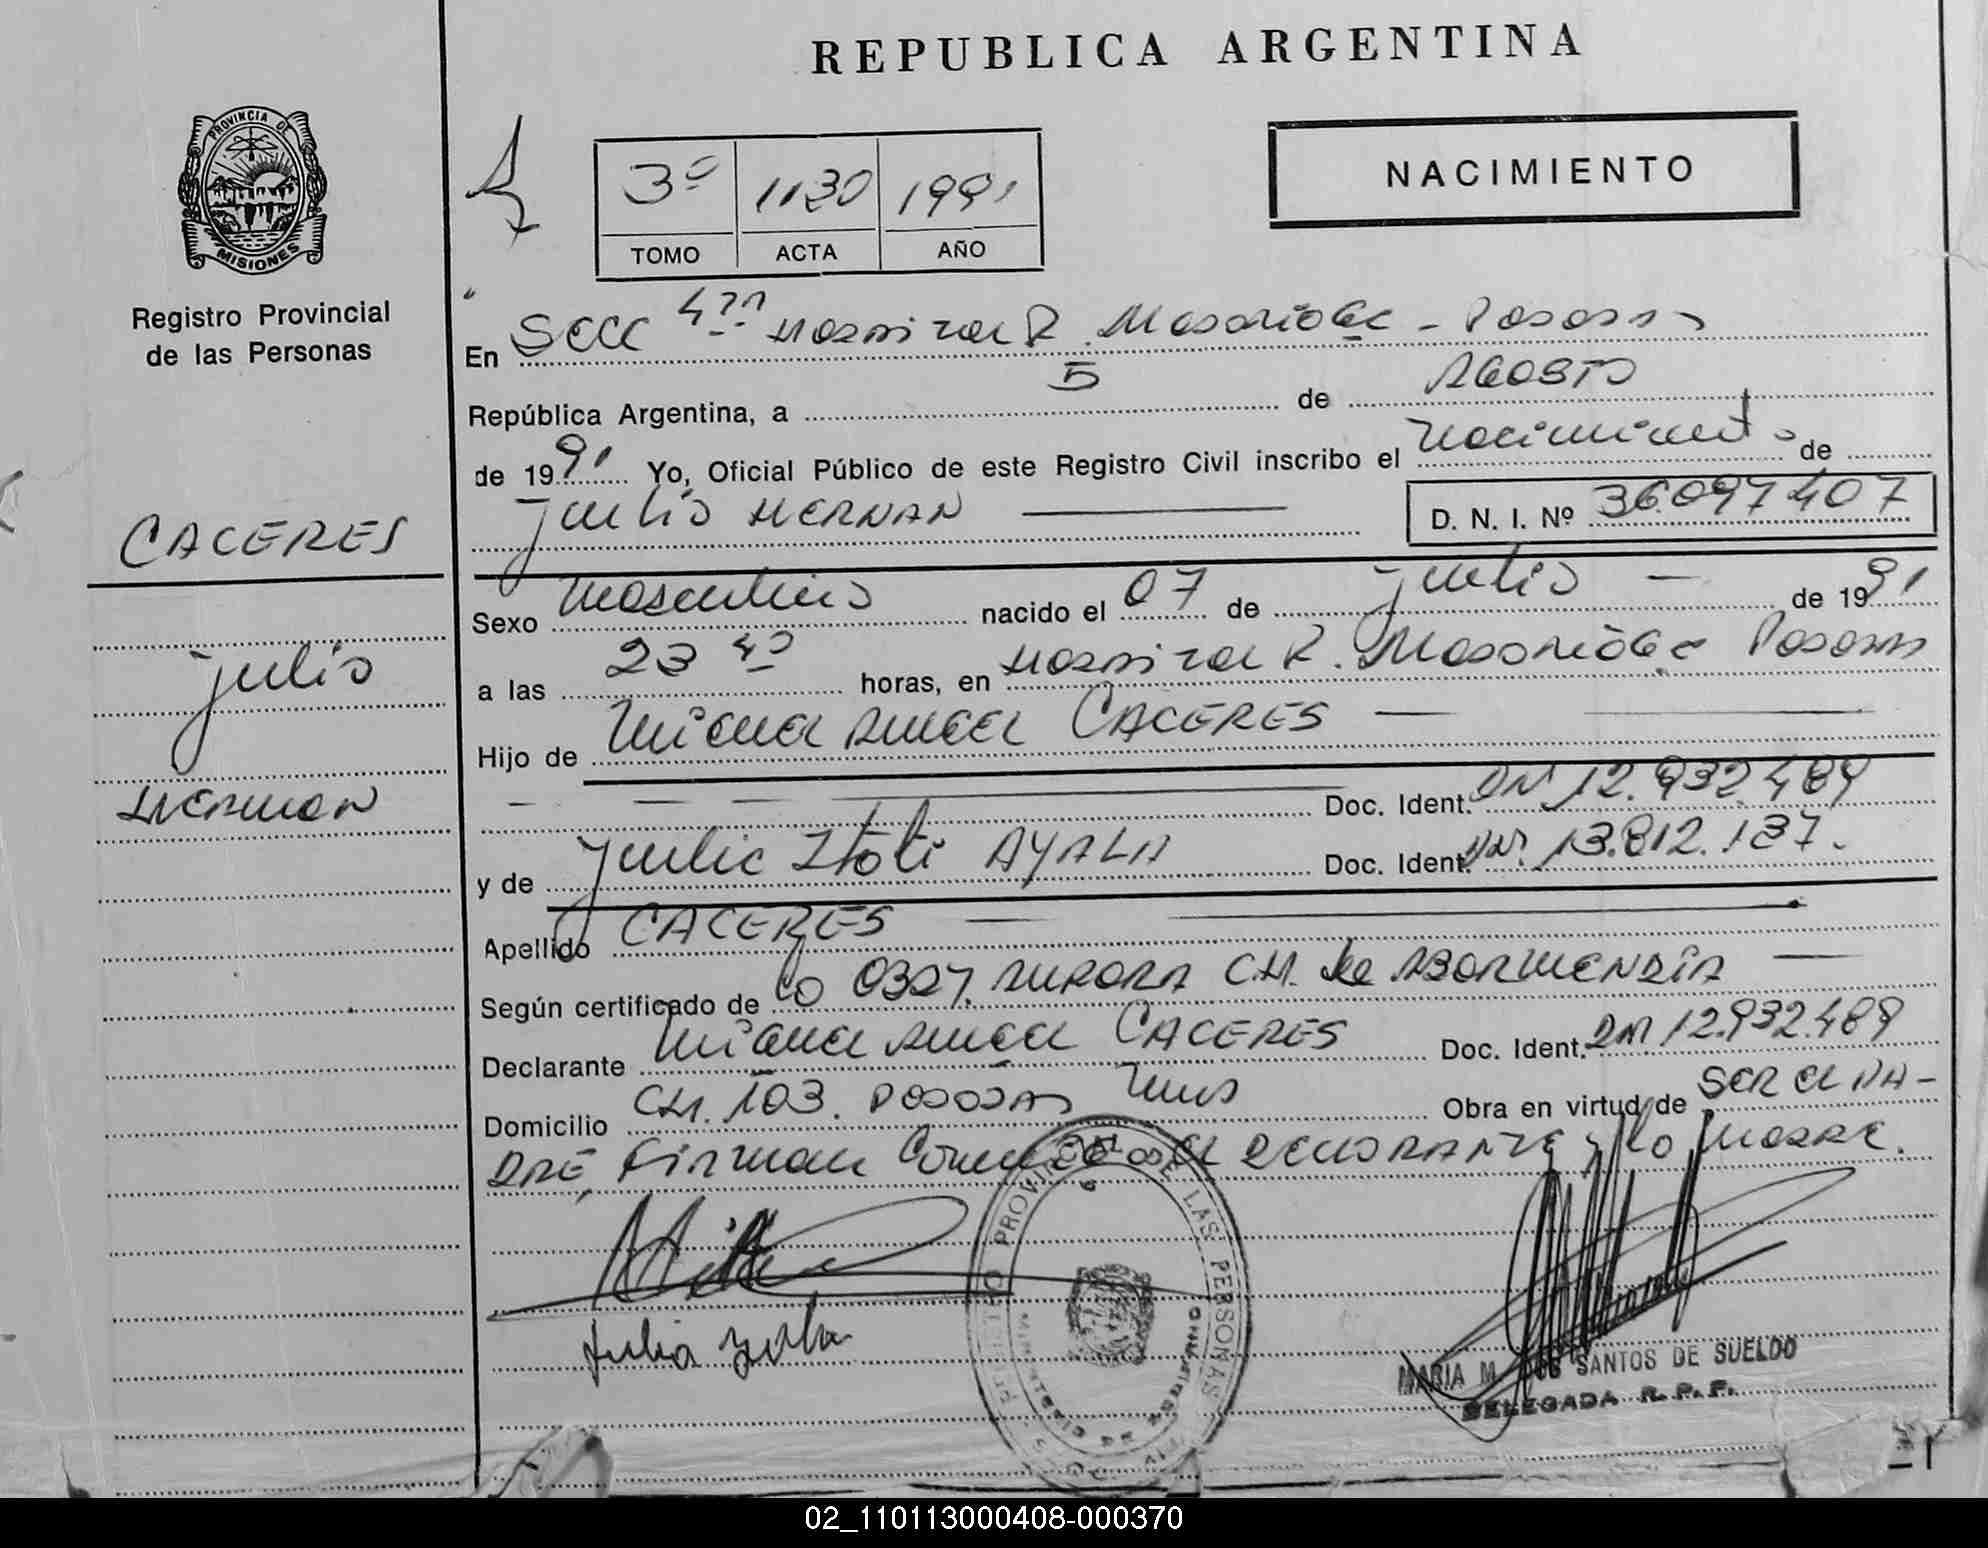 REPUBLICA ARGENTINA
PROVINCIA DE
MISIONES
Registro Provincial
de las Personas
3º 1130 1991
TOMO ACTA AÑO
NACIMIENTO
En SECC 4ta Hospital R. Madariaga - Posadas
República Argentina, a 5 de AGOSTO
de 1991 Yo, Oficial Público de este Registro Civil inscribo el nacimiento de
Julio HERNAN D. N. I. Nº 36.097407
CACERES
Julio
HERNAN
Sexo masculino nacido el 07 de julio de 1991
a las 23 40 horas, en Hospital R. Madariaga Posadas
Hijo de Miguel Angel CACERES
Doc. Ident. DNI 12.932.489
y de Julia Itati AYALA Doc. Ident. DNI. 13.812.137.
Apellido CACERES
Según certificado de 0327. AURORA CH. de
Declarante Miguel Angel CACERES Doc. Ident. DNI 12.932.489
Domicilio CH. 103. POSADAS Mnes Obra en virtud de SER el PA-
DRE, Firman Conmigo el DECLARANTE y la MADRE.
Julia Ayala
REGISTRO PROVINCIAL DE LAS PERSONAS
MINISTERIO DE GOBIERNO
MARIA M. DOS SANTOS DE SUELDO
DELEGADA R. P. P.
02_110113000408-000370